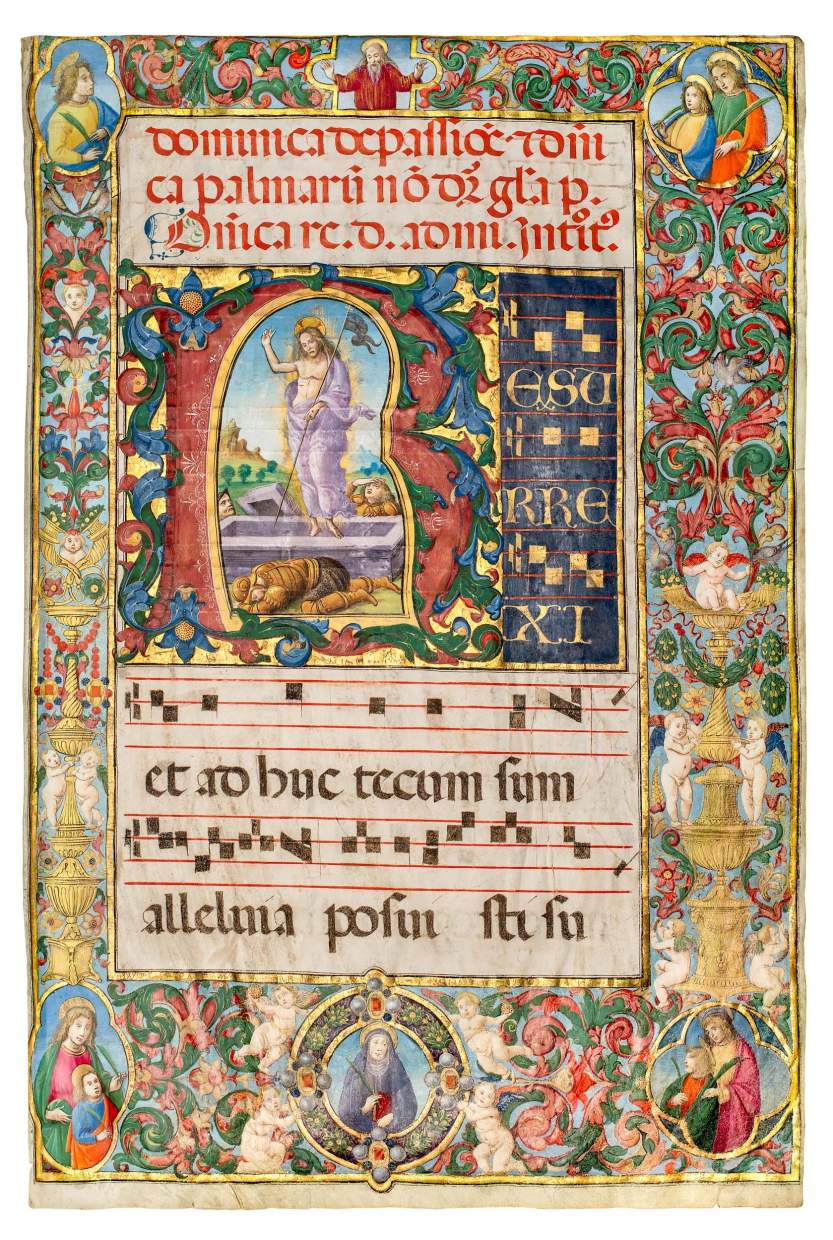 dominica de passiōe · ⁊ dñi
ca palmarū nō dr̄ gl̄a p.
Dñica rc. d. ad mi. Intōit᷒
R
ESU
RRE
XI
et ad huc tecum sum
alleluia posui sti su